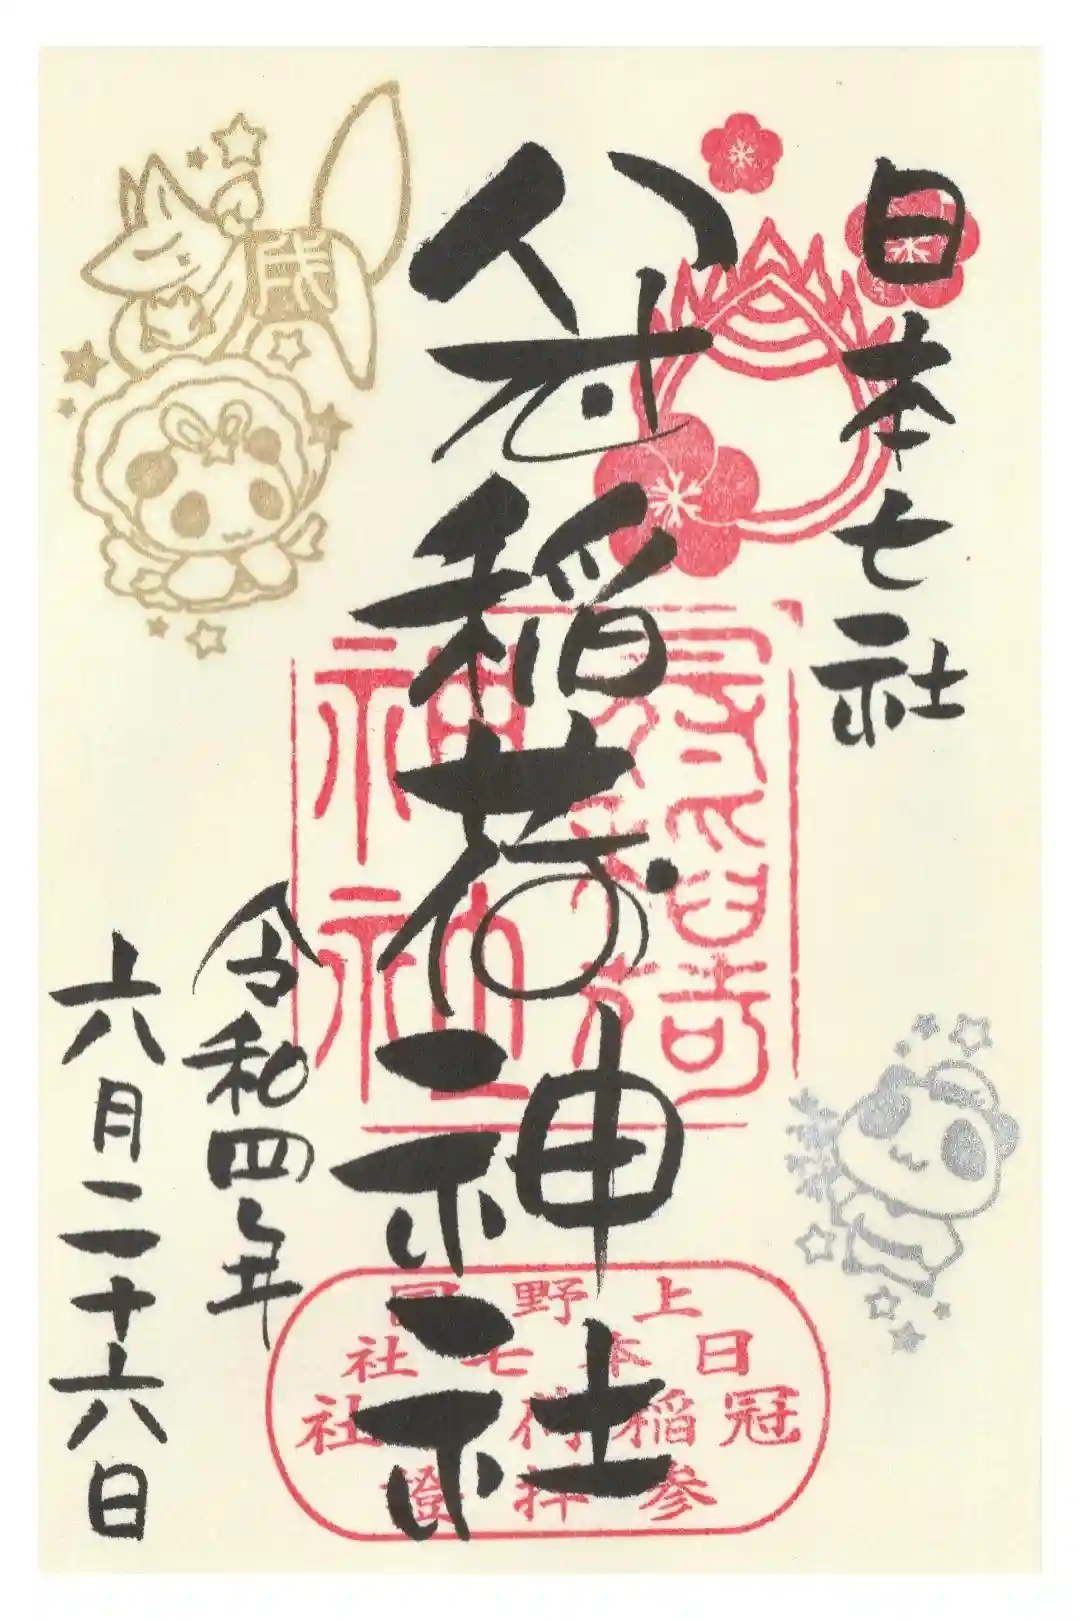 日本七社
冠稲荷神社
令和四年
六月二十六日
冠稲荷
神社
上野国
日本七社
冠稲荷社
参拝證